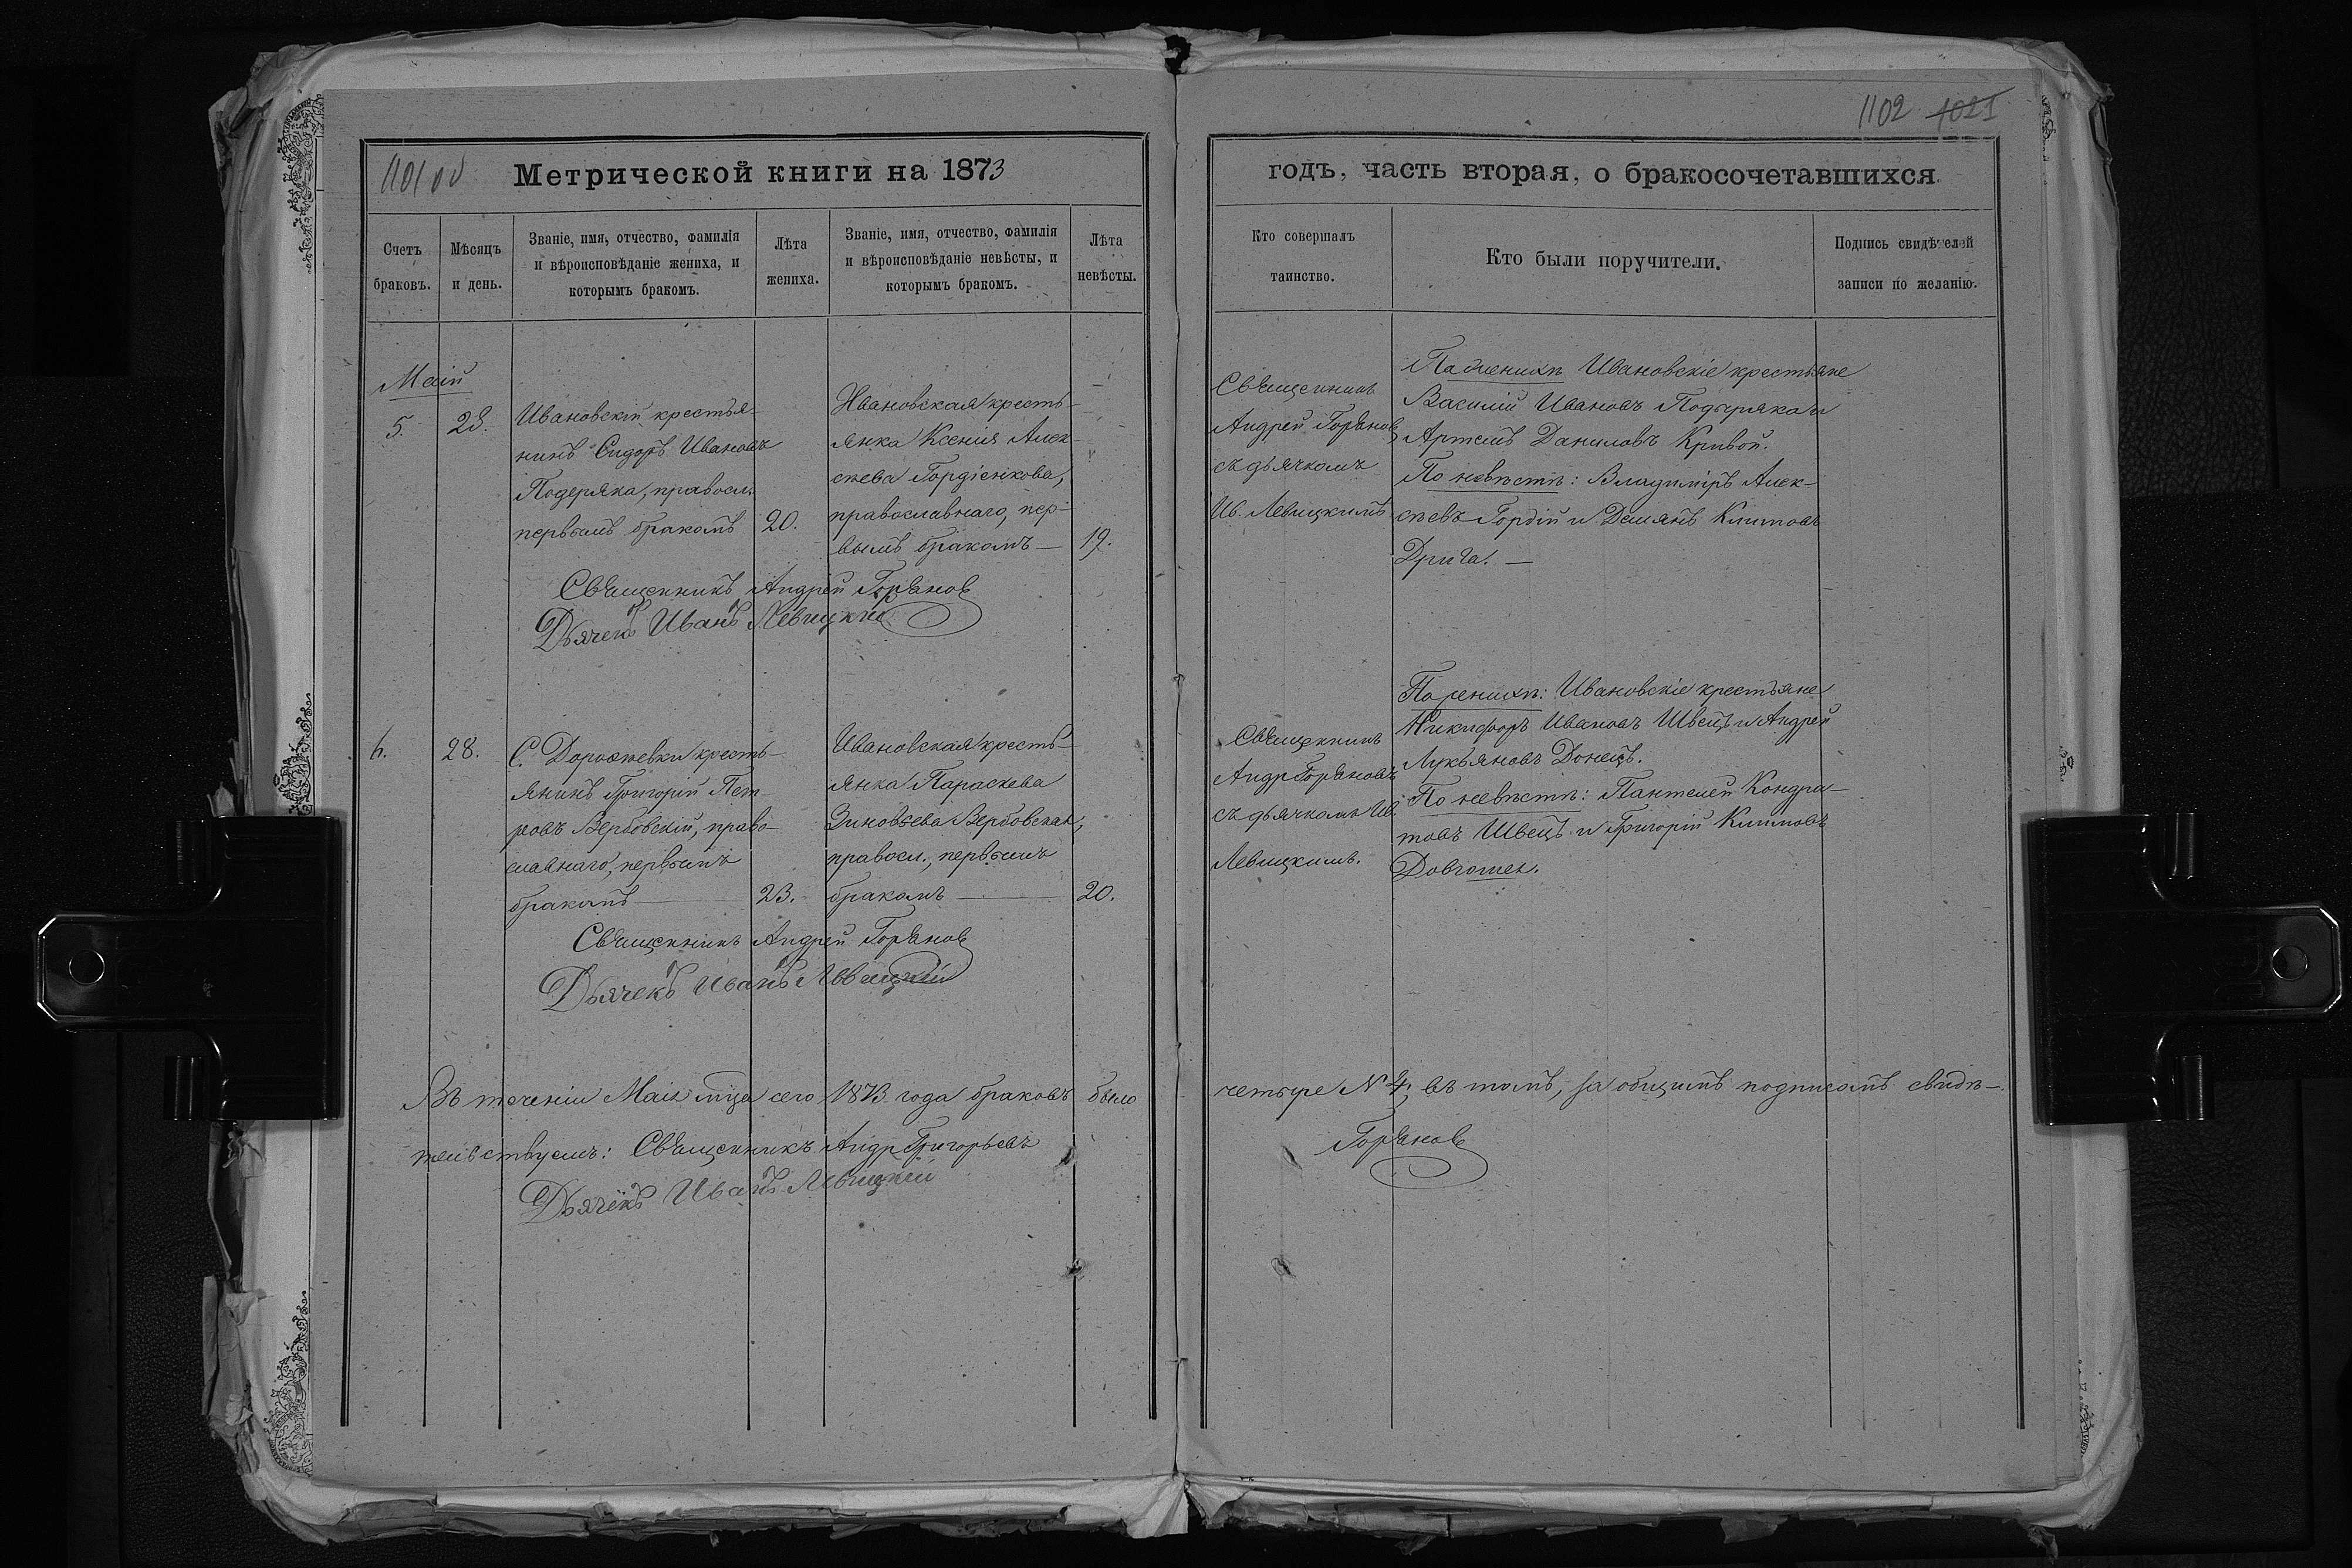 1102 1021
1101 об
Метрической книги на 1873
годъ, часть вторая, о бракосочетавшихся
Счетъ браковъ.
Мѣсяцъ и день.
Званіе, имя, отчество, фамилія и вѣроисповѣданіе жениха, и которымъ бракомъ.
Лѣта жениха.
Званіе, имя, отчество, фамилія и вѣроисповѣданіе невѣсты, и которымъ бракомъ.
Лѣта невѣсты.
Кто совершалъ таинство.
Кто были поручители.
Подпись свидѣтелей записи по желанію.
Маій
5.
28.
Ивановскій крестья-
нинъ Сидоръ Ивановъ
Подеряка, правосл.
первымъ бракомъ
20.
Ивановская кресть-
янка Ксенія Алек-
сѣева Гордіенкова,
православнаго, пер-
вымъ бракомъ —
19.
Священникъ
Андрей Горяновъ
съ дьячкомъ
Ив. Левицкимъ
По женихѣ Ивановскіе крестьяне
Василій Ивановъ Подеряка и
Артемъ Даниловъ Кривой.
По невѣстѣ: Владиміръ Алек-
сѣевъ Гордій и Демянъ Климовъ
Дрига. —
Священникъ Андрей Горянов
Дьячекъ Иванъ Левицкій
6.
28.
С. Дорожевки кресть-
янинъ Григорій Пет-
ровъ Вербовскій, право-
славнаго, первымъ
бракомъ —
23.
Ивановская кресть-
янка Параскева
Зиновьева Вербовская,
правосл., первымъ
бракомъ —
20.
Священникъ
Андр Горяновъ
съ дьячкомъ Ив.
Левицкимъ.
По женихѣ: Ивановскіе крестьяне
Никифоръ Ивановъ Швецъ и Андрей
Лукьяновъ Донецъ.
По невѣстѣ: Пантелей Кондра-
товъ Швецъ и Григорій Климовъ
Довгошея.
Священникъ Андрей Горянов
Дьячекъ Иванъ Левицкій
Въ теченіи Маія мца сего 1873 года браковъ было четыре № 4, въ томъ, за общимъ подписомъ свидѣ-
тельствуемъ: Священникъ Андр Григорьевъ Горянов
Дьячекъ Иванъ Левицкій